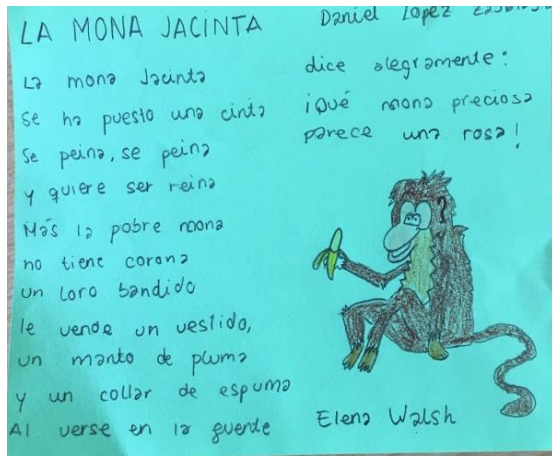 LA MONA JACINTA
Daniel Lopez
La mona Jacinta
Se ha puesto una cinta
Se peina, se peina
y quiere ser reina
Más la pobre mona
no tiene corona
un loro bandido
le vende un vestido,
un manto de pluma
y un collar de espuma
Al verse en la fuente
dice alegramente:
¡Qué mona preciosa
parece una rosa!
Elena Walsh